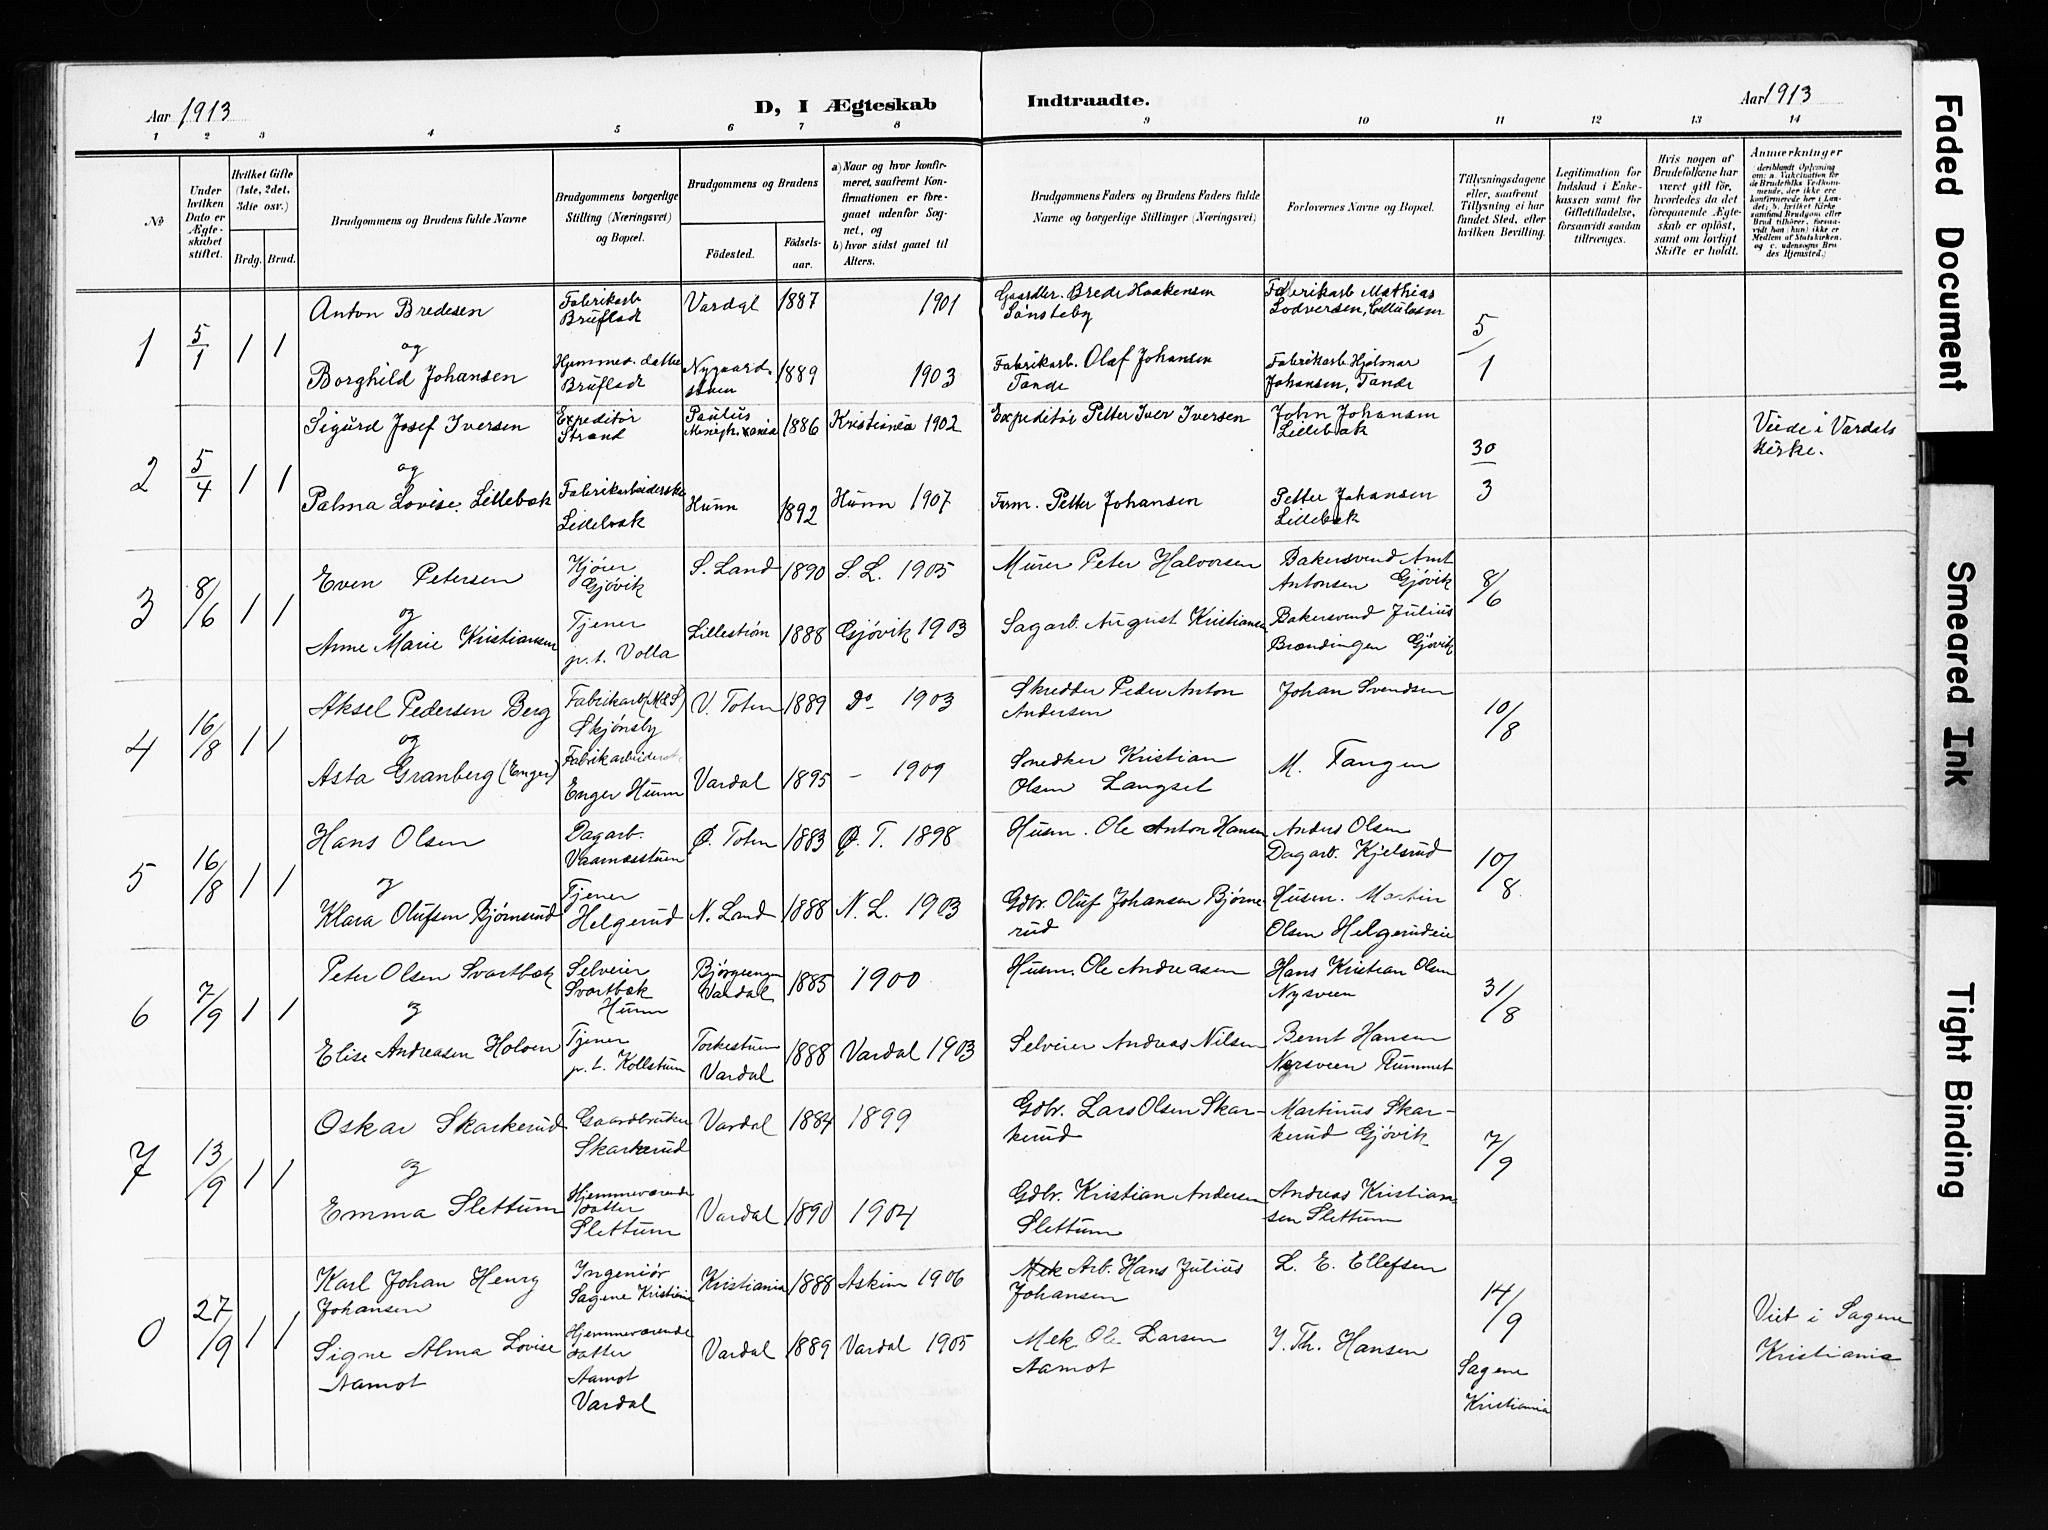 Aar 1913
D, I Ægteskab Indtraadte.
Aar 1913
1 2 3 4 5 6 7 8 9 10 11 12 13 14
No
Under hvilken Dato er Ægteskabet stiftet.
Hvilket Gifte (1ste, 2det, 3die osv.)
Brdg. Brud.
Brudgommens og Brudens fulde Navne
Brudgommens borgerlige Stilling (Næringsvei) og Bopæl.
Brudgommens og Brudens
Fødested. Fødsels-aar.
a) Naar og hvor konfirmeret, saafremt Konfirmationen er foregaaet udenfor Sognet, og
b) hvor sidst gaaet til Alters.
Brudgommens Faders og Brudens Faders fulde Navne og borgerlige Stillinger (Næringsvei)
Forlovernes Navne og Bopæl.
Tillysningsdagene eller, saafremt Tillysning ei har fundet Sted, efter hvilken Bevilling.
Legitimation for Indskud i Enkekassen samt for Giftetilladelse, forsaavidt saadan tiltrænges.
Hvis nogen af Brudefolkene har været gift før, hvorledes da det foregaaende Ægteskab er opløst, samt om lovligt Skifte er holdt.
Anmærkninger
1 5/1 1 1 Anton Bredesen Fabrikarb Brufladt Vardal 1887 1901 Gaardbr. Brede Haakensen Sønsteby Fabrikarb Mathias Lodversen, 5/1
og
Borghild Johansen Hjemmev. datter Brufladt 1889 1903 Fabrikarb. Olaf Johansen Tande Fabrikarb Hjalmar Johansen, Tande
2 5/4 1 1 Sigurd Josef Iversen Expeditør Strand Paulus Menigh. 1886 Kristiania 1902 Expeditør Petter Iver Iversen John Johansen Lillebæk 30/3 Viede i Vardals Kirke.
og
Palma Lovise Lillebæk Fabrikarbeiderske Lillebæk Hunn 1892 Hunn 1907 Form. Petter Johansen Petter Johansen Lillebæk
3 8/6 1 1 Even Petersen Kjører Gjøvik S. Land 1890 S. L. 1905 Murer Peter Halvorsen Bakersvend Arnt Antonsen Gjøvik 8/6
og
Anne Marie Kristiansen Tjener p.t. Volla Lillestrøm 1888 Gjøvik 1903 Sagarb. August Kristiansen Bakersvend Julius Brændingen Gjøvik
4 16/8 1 1 Aksel Pedersen Berg Fabrikarb Skjønsby V. Toten 1889 do 1903 Skrædder Peder Anton Andersen Johan Svendsen 10/8
og
Asta Granberg (Enger) Fabrikarbeiderske Enger Hunn Vardal 1895 - 1909 Snedker Kristian Olsen Langset M. Tangen
5 16/8 1 1 Hans Olsen Dagarb. Vaarnæsstuen Ø. Toten 1883 Ø. T. 1898 Husm. Ole Anton Hansen Anders Olsen Dagarb. Kjelsrud 10/8
og
Klara Olufsen Bjørnerud Tjener Helgerud N. Land 1888 N. L. 1903 Gdbr. Oluf Johansen Bjørnerud Husm. Martin Olsen Helgerudeie
6 7/9 1 1 Peter Olsen Svartbæk Selveier Svartbæk Hunn Bjørgeengen Vardal 1885 1900 Husm. Ole Andreasen Hans Kristian Olsen Nysveen 31/8
og
Elise Andreasen Holoen Tjener p.t. Kollstuen Torkestuen Vardal 1888 Vardal 1903 Selveier Andreas Nilsen Bernt Hansen Nysveen Rummet
7 13/9 1 1 Oskar Skarkerud Gaardbruker Skarkerud Vardal 1884 1899 Gdbr. Lars Olsen Skarkerud Martinus Skarkerud Gjøvik 7/9
og
Emma Slettum Hjemmeværende datter Slettum Vardal 1890 1904 Gdbr. Kristian Andersen Slettum Andreas Kristiansen Slettum
0 27/9 1 1 Karl Johan Henry Johansen Ingeniør Sagene Kristiania Kristiania 1888 Askim 1906 Mek Arb. Hans Julius Johansen L. E. Ellefsen 14/9 Sagene Kristiania Viet i Sagene Kristiania
Signe Alma Lovise Aamot Hjemmeværende datter Aamot Vardal Vardal 1889 Vardal 1905 Mek. Ole Larsen Aamot I. Th. Hansen
Faded Document
Smeared Ink
Tight Binding